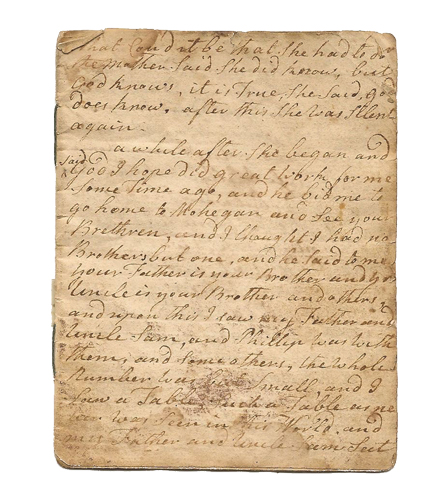 What Coud it be that She had to do
the mother Said She did know, but
God knows, it is True She Said, god
does know, after this She was Silent
again.
a while after She began and
Said
God I hope did great Work for me
Some time ago, and he bid me to
go home to Mohegan and See you
Brethren, and I thought I had no
Brothers but one, and he Said to me
Your Father is your Brother and yr
Uncle is your Brother and others,
and upon this I Saw my Father and
Uncle Sam, and Phillip was with
them, and Some others, the whole
Number was Small, and I
Saw a Table Such a Table as ne
was Seen in this World, and
my Father and Uncle Sam Set